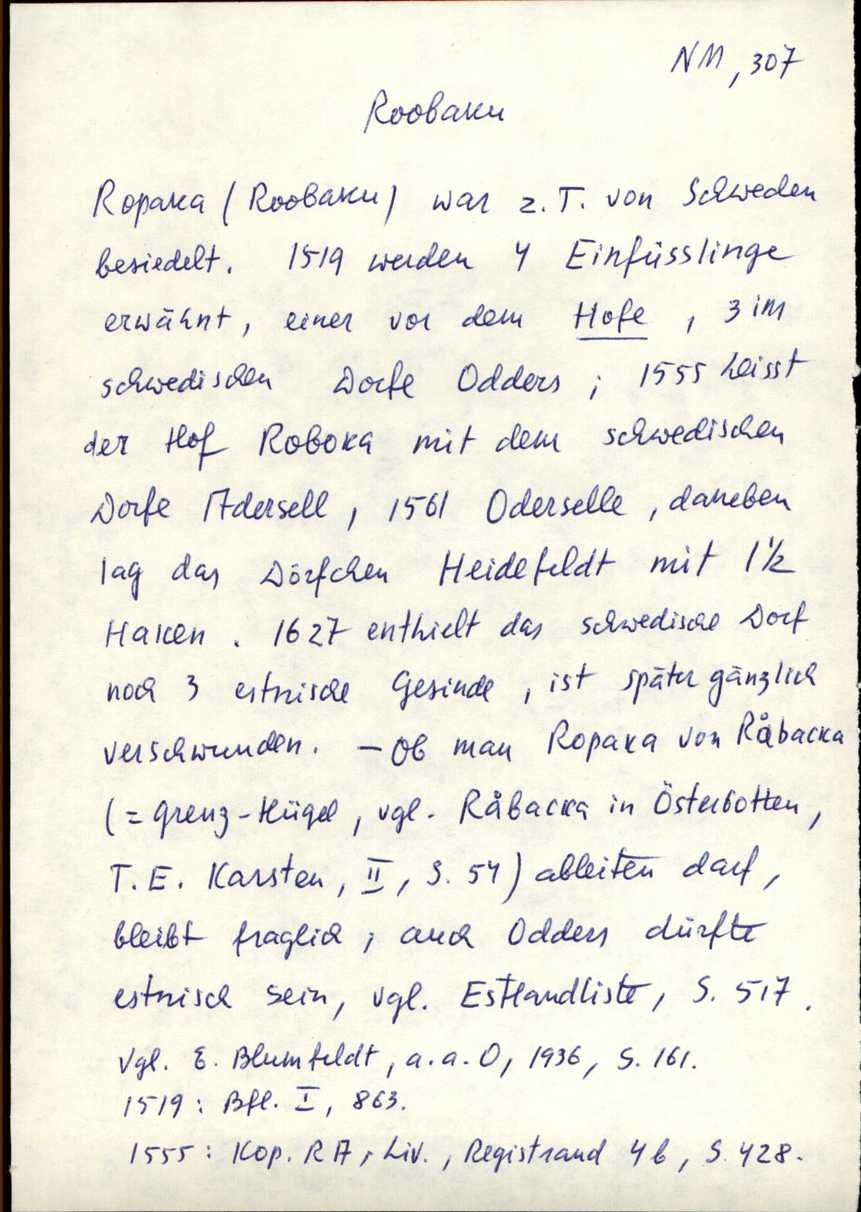 NM, 307
Roobaku
Ropaka (Roobaku) war z.T. von Schweden
besiedelt. 1519 werden 4 Einfüsslinge
erwähnt, einer vor dem Hofe, 3 im
schwedischen Dorfe Odders; 1555 heisst
der Hof Roboka mit dem schwedischen
Dorfe Adersell, 1561 Oderselle, daneben
lag das Dörfchen Heidefeldt mit 1½
Haken. 1627 enthielt das schwedische Dorf
noch 3 estnische Gesinde, ist später gänzlich
verschwunden. – Ob man Ropaka von Råbacka
(= Grenz-Hügel, vgl. Råbacka in Österbotten,
T. E. Karsten, II, S. 54) ableiten darf,
bleibt fraglich; auch Odders dürfte
estnisch sein, vgl. Estlandliste, S. 517.
Vgl. E. Blumfeldt, a.a.O, 1936, S. 161.
1519: Bfl. I, 863.
1555: Kop. RA, Liv., Registrand 4b, S. 428.